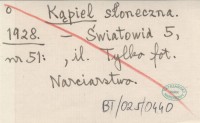 o Kąpiel słoneczna.
1928. – Światowid 5,
nr 51: , il. Tylko fot.
Narciarstwo.
BT/025/0440